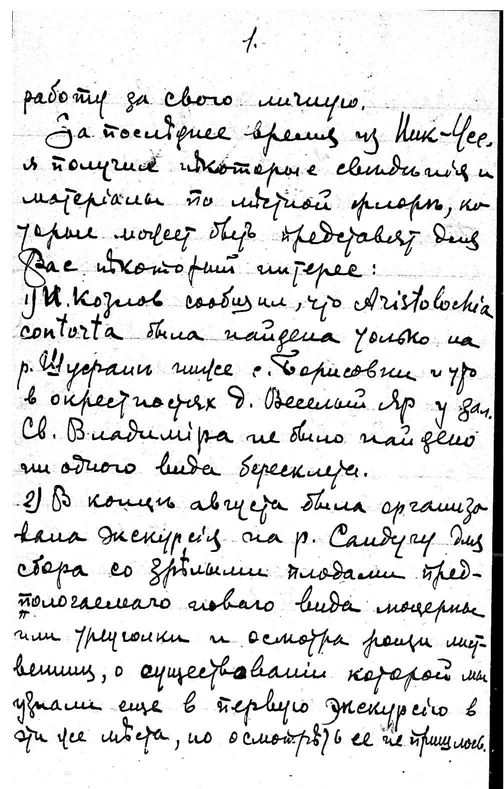 1.
работу за свого личную.
За послѣднее время из Ник-Усс.
я получил нѣкоторые свѣдѣнія и
матеріалы по мѣстной флорѣ, ко
торые может быть представят для
Вас нѣкоторый интерес:
1) И. Козлов сообщил, что Aristolochia
contorta была найдена только на
р. ниже с. Борисовки и что
в окрестностях д. Веселый Яр у зал.
Св. Владиміра не было найдено
ни одного вида бересклета.
2) В концѣ августа была организо
вана экскурсія на р. Сандугу для
сбора со зрѣлыми плодами пред-
пологаемаго новаго вида
или и осмотра рощи лист-
венниц, о существованіи которой мы
узнали еще в первую экскурсію в
эти же мѣста, но осмотрѣть ее не пришлось.